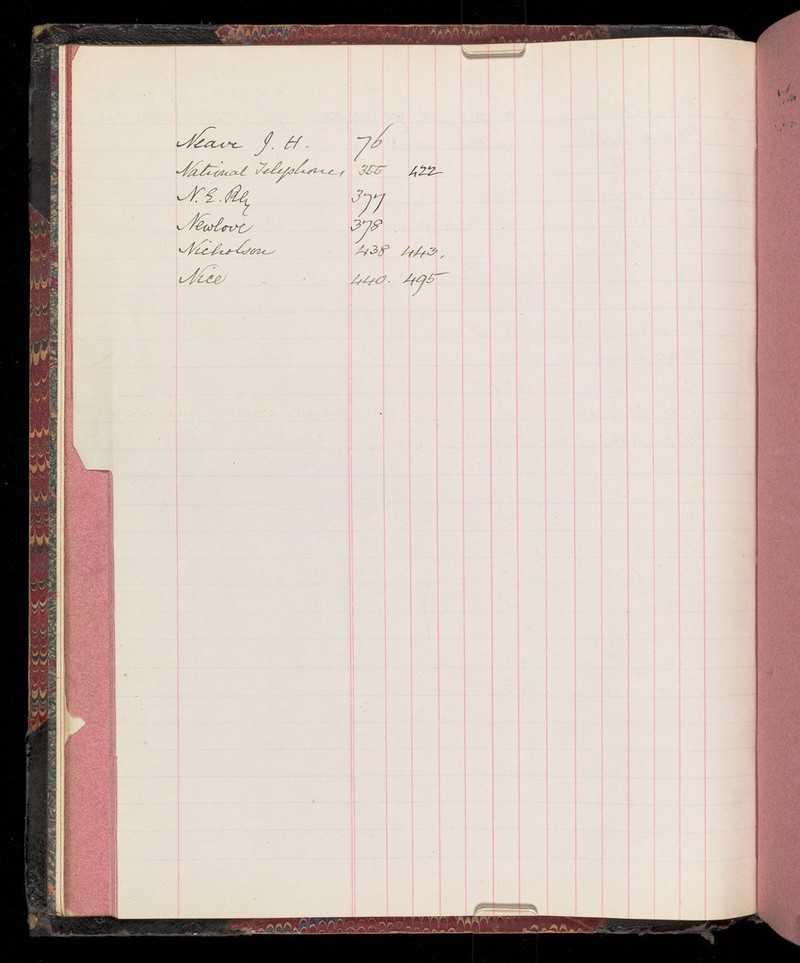 Neave J. H. 76
National Telephones 355 422
N. E. Rly 377
Newlove 378
Nicholson 438 443.
Nice 440. 495